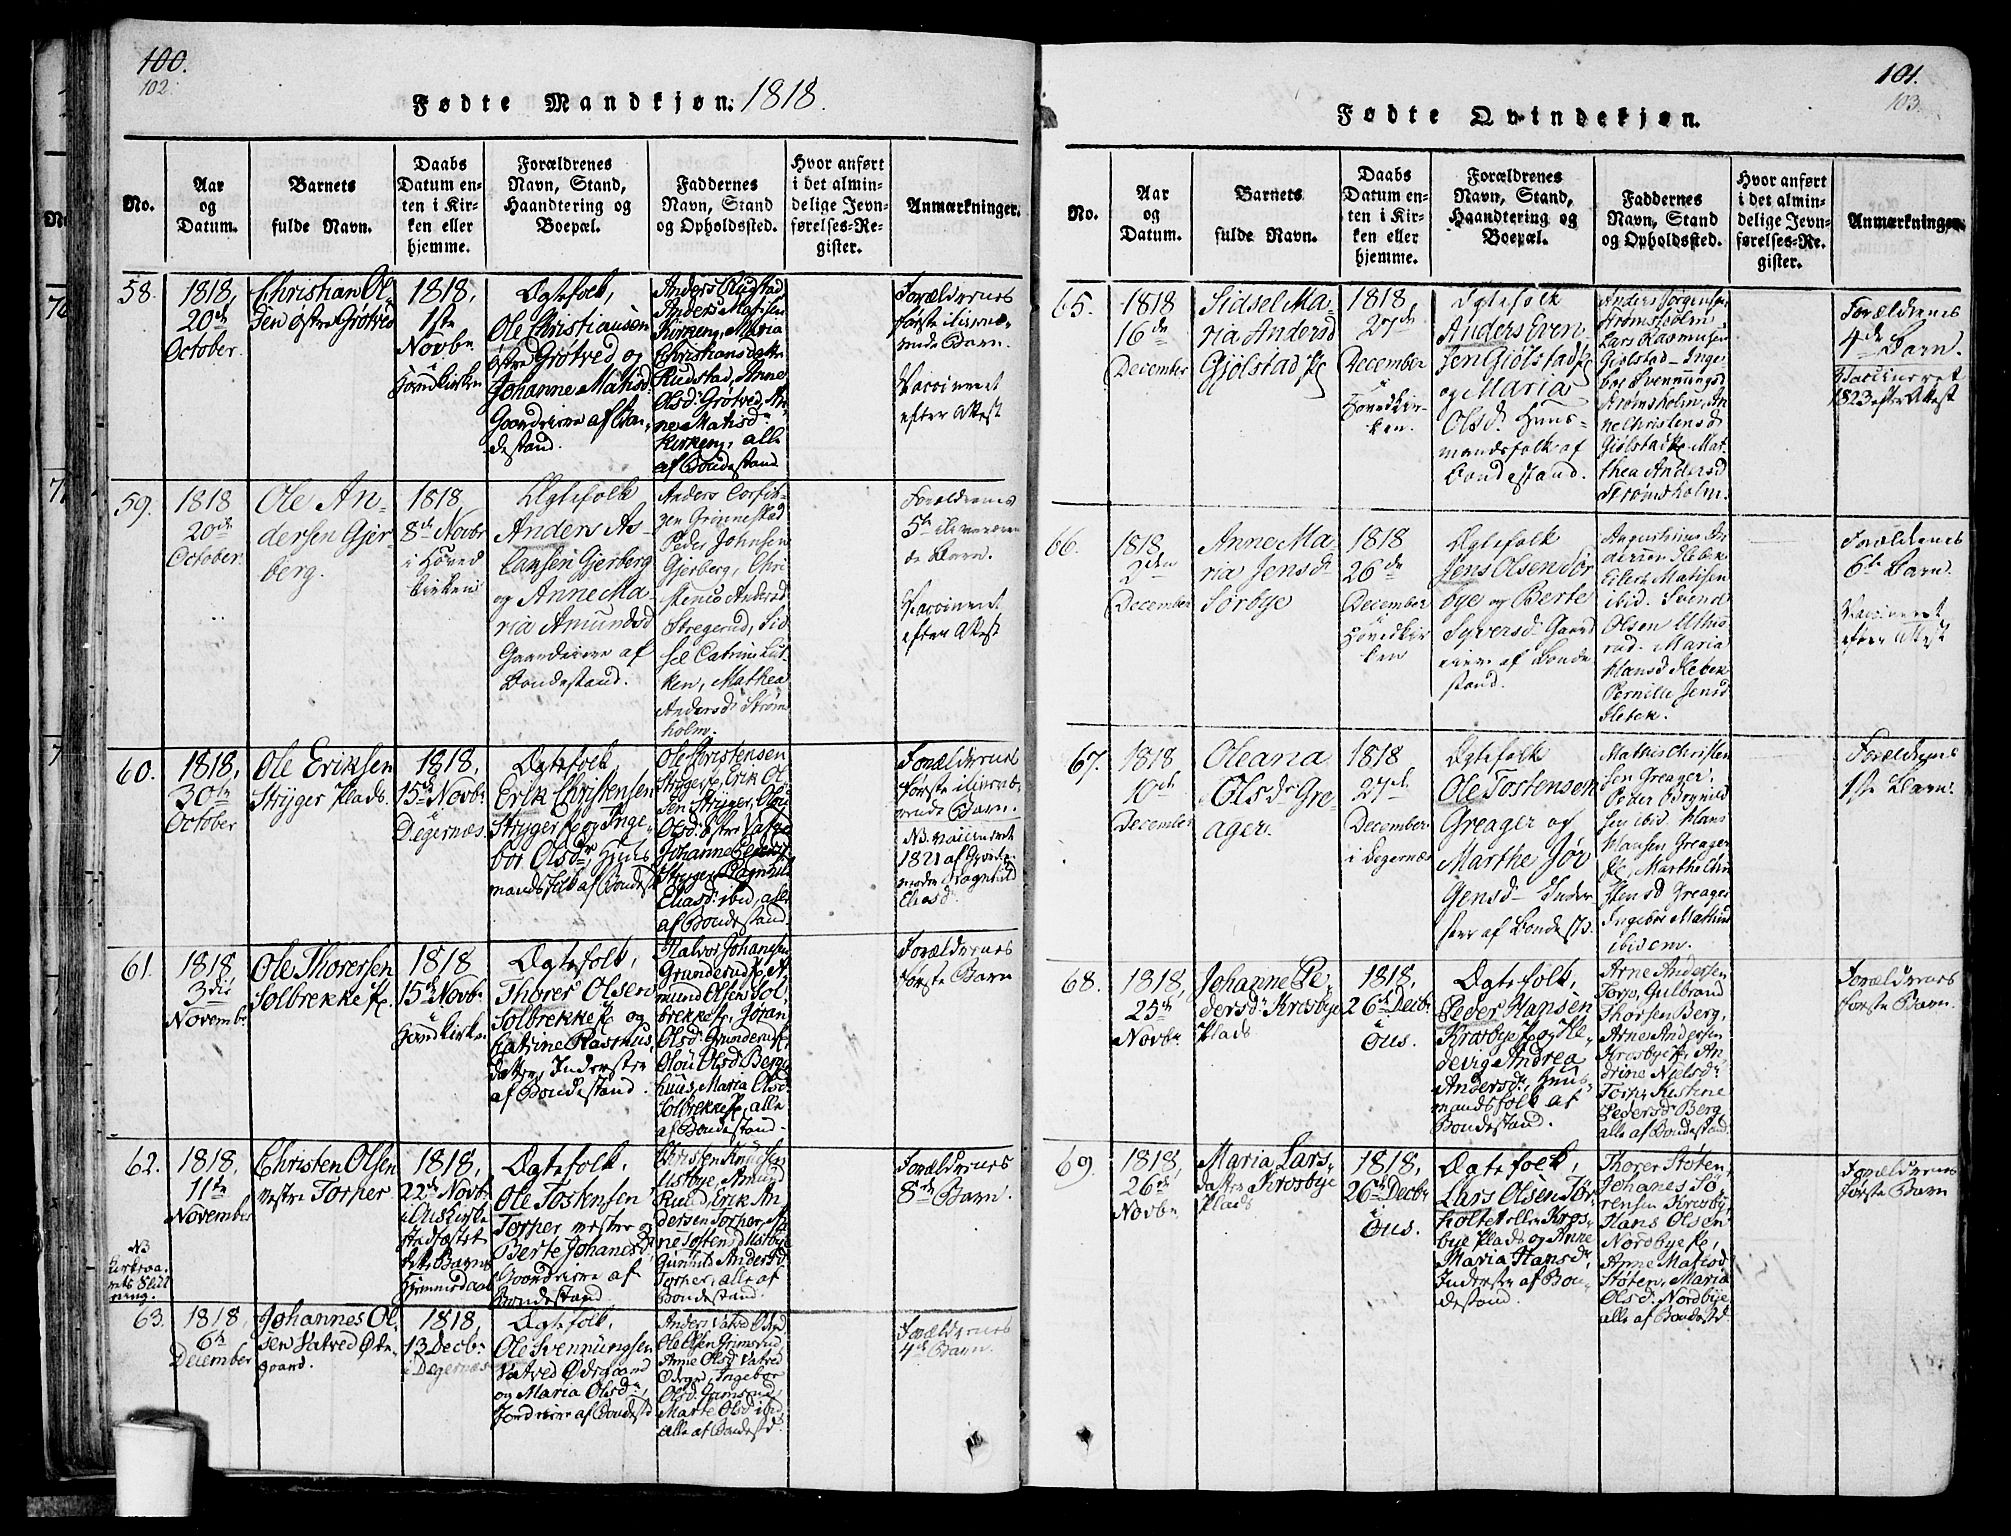 100.
102.
Fødte Mandkjøn. 1818.
No.
Aar
og
Datum.
Barnets
fulde Navn.
Daabs
Datum en-
ten i Kir-
ken eller
hjemme.
Forældrenes
Navn, Stand,
Haandtering og
Boepæl.
Faddernes
Navn, Stand
og Opholdssted.
Hvor anført
i det almin-
delige Jevn-
førelses-Re-
gister.
Anmærkninger.
58.
1818,
20de
October.
Christian Ol-
sen østre Grötved
1818,
1ste
Novbr
i
Hovedkirken
Ægtefolk,
Ole Christiansen
østre Grötved og
Johanne Matisd.
Gaardeiere af Bon-
destand.
Anders Rustad,
Anders Matisen
Kirkeng, Maria
Christiansdatter
Rudstad, Anne
Olsd. Grötved, An-
ne Matisdr
Kirkeng, alle
af Bondestand
Forældrenes
første
Barn.
Vaccineret
efter Attest
59.
1818
20de
October.
Ole An-
dersen Gjer-
berg.
1818,
8de Novbr
i Hoved
kirken
Ægtefolk
Anders As-
lansen Gjerberg
og Anne Ma-
ria Amundsd
Gaardeiere af
Bondestand.
Anders
Grinnestad
Peder Johnsen
Gjerberg, Chri-
Andersd
Stregerud, Sid-
sel Catrine
Mathea
Andersd. Strøms
holm.
Forældrenes
5te
Barn.
Vaccineret
efter Attest
60.
1818,
30te
October
Ole Eriksen
Stryger Plads.
1818,
15de Novbr
i
Degernæs.
Ægtefolk,
Erik Christensen
Stryger Pl og Inge-
bor Olsdr, Huus
mandsfolk af Bondest
Ole Christensen
Stryger Pl, Erik Ol-
sen Stryger,
Olsd. østre
Johanne
Stryger, Ragnhild
Eliasd. ibid, alle
af Bondestand
Forældrenes
første
Barn.
NB. Vaccineret
1821 af Gjorde-
moder Ragnhild
Eliasd.
61.
1818,
3die
Novembr
Ole Thorersen
Solbrekke Pl.
1818
15de Novbr
i
Hovedkirken
Ægtefolk,
Thorer Olsen
Solbrekke Pl og
Catrine Rasmus-
datter, Inderster
af Bondestand.
Halvor Johansen
Grunderud Pl, A-
mund Olsen Sol-
brekke Pl, Joran
Olsd. Grunderud Pl,
Olou Olsd. Berg-
huus, Maria Olsd.
Solbrekke Pl, alle
af Bondestand.
Forældrenes
første Barn
62.
1818,
11te
November
NB
Christen Olsen
vestre Torper
1818,
22de Novbr
i Ous Kirke
stadfæstet
dets Barne
Hjemmedaab
Ægtefolk,
Ole Tostensen
Torper vestre og
Berte Johansd.
Gaardeiere af
Bondestand
Christen Knudsen
Lustbye, Amund
Ruud, Erik An-
dersen Torper, An-
ne Tostensd. Lustbye
Gunild Andersd.
Torper, alle af
Bondestand.
Forældrenes
8de Barn.
63.
1818,
6te
December
Johannes Ol-
sen Vatved Øde-
gaard.
1818,
13 Decbr
i Degernæs
Ægtefolk,
Ole Svenningsen
Vatved Ødegaard
og Maria Olsdr,
Jordeiere af Bondestd
Anders Vatved Ødegd,
Ole Olsen Grimsrud,
Anne Olsd Vatved
Ødegd, Ingebor
Olsd. Grimsrud,
Marte Olsd ibid
alle af Bondestd.
Forældrenes
4de Barn.
101.
103.
Fødte Qvindekjøn.
No.
Aar
og
Datum.
Barnets
fulde Navn.
Daabs
Datum en-
ten i Kir-
ken eller
hjemme.
Forældrenes
Navn, Stand,
Haandtering og
Boepæl.
Faddernes
Navn, Stand
og Opholdssted.
Hvor anført
i det almin-
delige Jevn-
førelses-Re-
gister.
Anmærkninger.
65.
1818
16de
December
Sidsel Ma-
ria Andersd
Gjölstad Pl
1818,
27de
December
i
Hovedkir-
ken.
Ægtefolk
Anders Even
sen Gjölstad Pl
og Maria
Olsd. Huus-
mandsfolk af
Bondestand.
Anders Jørgensen
Strømsholm,
Lars Rasmusen
Gjølstad – Inge-
bor Svenningsd
Strømsholm, An-
ne Christensd
Gjølstad Pl, Mat-
thea Andersd
Strømsholm.
Forældrenes
4de Barn.
Vaccineret
1823 efter Attest
66.
1818,
2den
December
Anne Ma-
ria Jensd.
Sörbye
1818
26de
December
i
Hovedkir
ken
Ægtefolk
Jens Olsen Sør
bye og Berte
Syversd. Gaard
eiere af Bonde
stand.
Eilert Matisen
ibid. Svend
Olsen
Maria
Hansd
Pernille Jensd
Forældrenes
6te Barn.
Vaccineret
efter Attest
67.
1818
10de
December
Oleana
Olsdr Gre
ager.
1818
27de
December
i Degernæs
Ægtefolk
Ole Tostensen
Greager og
Marthe Jør
gensd – Inder
ster af Bondestd.
Mathis Christen
sen Greager,
Peder
sen ibid Hans
Hansen Greager
Pl, Marthe Chri
stensd Greager
Ingebor
ibidem.
Forældrenes
1ste Barn.
68.
1818,
25de
Novbr.
Johanne Pe-
dersdr Krosbye
Plads
1818,
26de Decbr
i
Ous.
Ægtefolk,
Peder Hansen
Krosbye Pl og He-
devig Andrea
Andersdr, Huus-
mandsfolk af
Bondestand.
Arne Andersen
Torp, Gulbrand
Thorsen Berg,
Arne Andersen
Krosbye Pl, An-
drine Nielsdr
Torp, Kestine
Pedersd. Berg,
alle af Bondestand.
Forældrenes
første Barn
69.
1818,
26de
Novbr
Maria Lars-
datter Krosbye
Plads
1818,
26de Decbr
i
Ous.
Ægtefolk,
Lars Olsen Tör-
holtet eller Kros-
bye Plads og Anne
Maria Hansdr,
Inderste af Bon-
destand.
Thorer Støten,
Johanes Sö-
rensen Krosby,
Hans Olsen
Nordbye Pl,
Anne Matisd
Støten, Maria
Olsd. Nordbye
alle af Bondestd
Forældrenes
første Barn